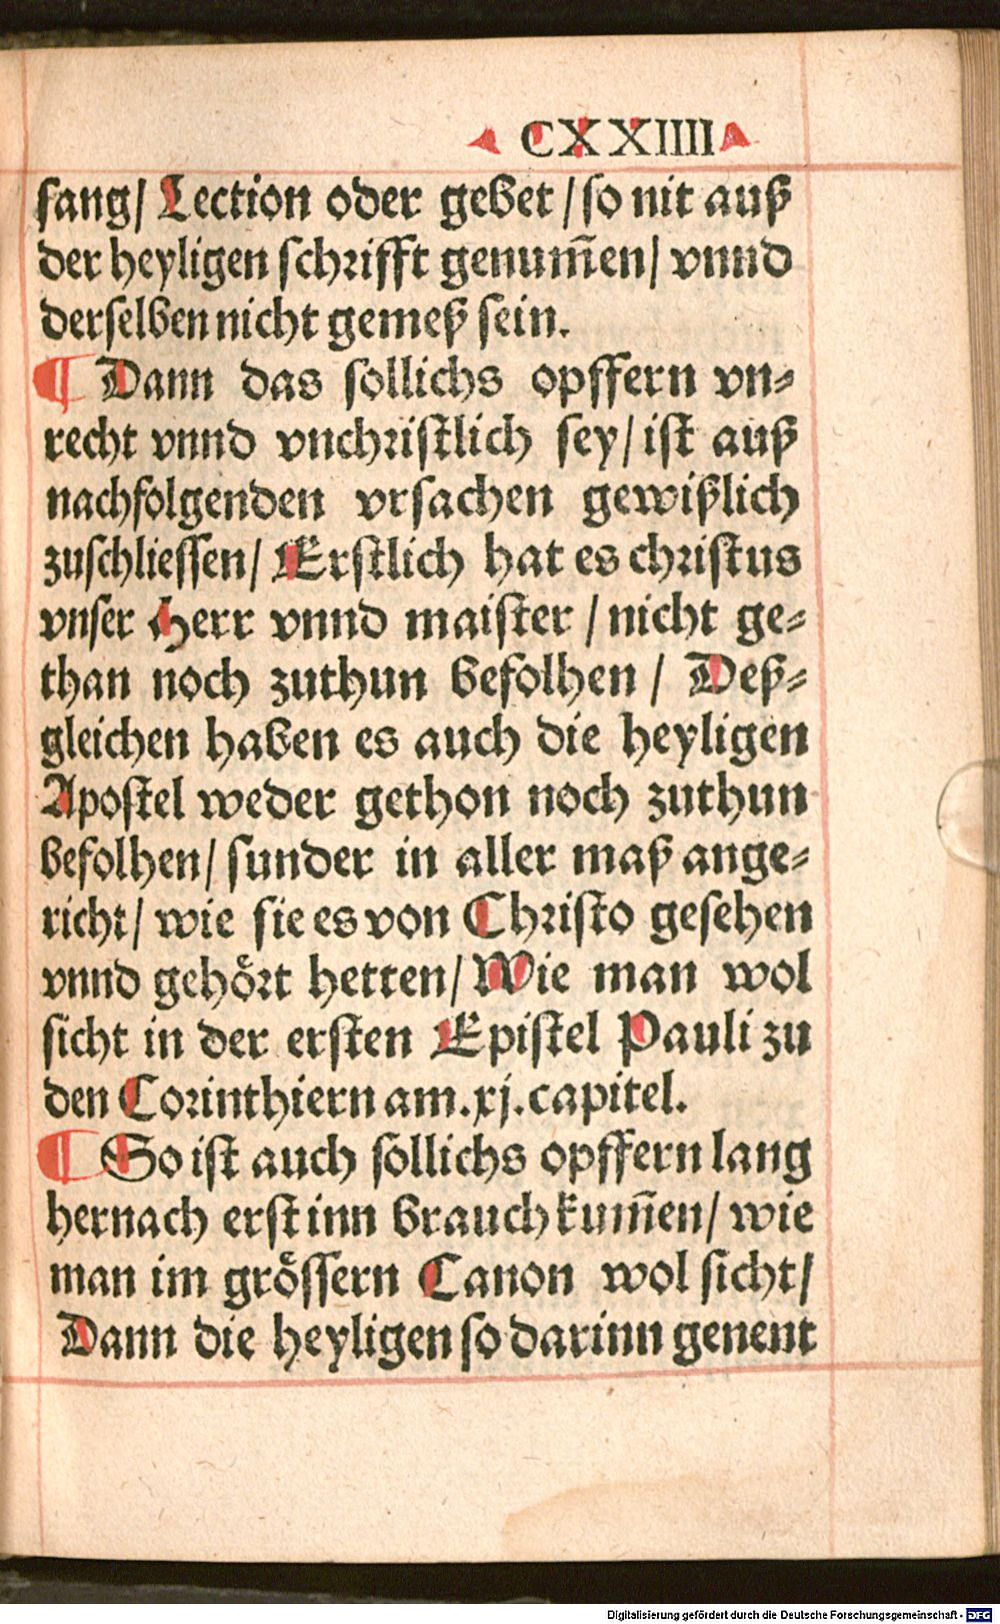 CXXIIII
sang/ Lection oder gebet / so nit auß
der heyligen schrifft genum̃en/ vnnd
derselben nicht gemeß sein.
¶ Dann das sollichs opffern vn⸗
recht vnnd vnchristlich sey/ ist auß
nachfolgenden vrsachen gewißlich
zuschliessen/ Erstlich hat es christus
vnser Herr vnnd maister / nicht ge⸗
than noch zuthun befolhen / Deß⸗
gleichen haben es auch die heyligen
Apostel weder gethon noch zuthun
befolhen/ sunder in aller maß ange⸗
richt/ wie sie es von Christo gesehen
vnnd gehoͤrt hetten/ Wie man wol
sicht in der ersten Epistel Pauli zu
den Corinthiern am.xj.capitel.
¶ So ist auch sollichs opffern lang
hernach erst inn brauch kum̃en/ wie
man im groͤssern Canon wol sicht/
Dann die heyligen so darinn genent
Digitalisierung gefördert durch die Deutsche Forschungsgemeinschaft - DFG